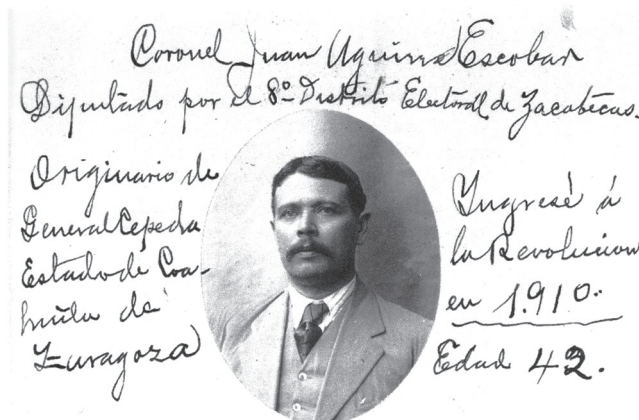 Coronel Juan Aguirre Escobar
Diputado por el 8º Distrito Electoral de Zacatecas.
Originario de
General Cepeda
Estado de Coa-
huila de
Zaragoza
Ingresé á
la Revolucion
en 1.910.
Edad 42.